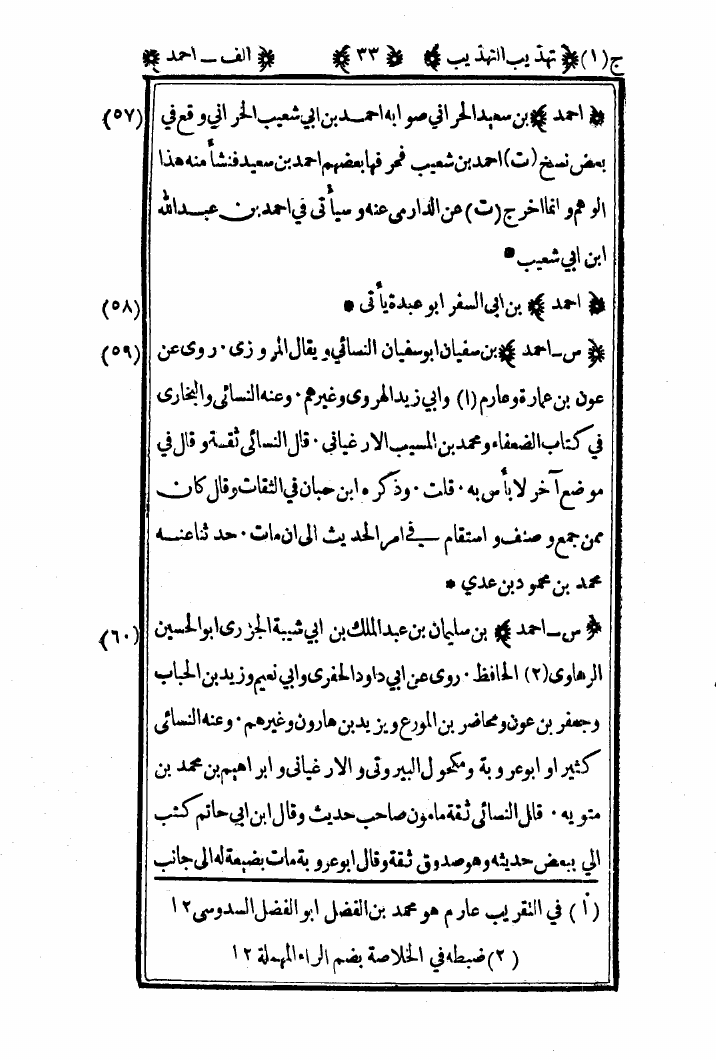 ج(١) تهذيب التهذيب ٣٣ الف ــ احمد
احمد بن سعيد الحراني صوابه احمد بن ابي شعيب الحراني وقع في (٥٧)
بعض نسخ (ت) احمد بن شعيب فحرفها بعضهم احمد بن سعيد فنشأ منه هذا
الوهم و انما اخرج (ت) عن الدارمى عنه و سيأتى في احمد بن عبد الله
ابن ابي شعيب *
احمد بن ابى السفر ابو عبدة يأتى * (٥٨)
س ــ احمد بن سفيان ابو سفيان النسائي و يقال المروزى ٠ روى عن (٥٩)
عون بن عمارة و عارم (١) وابي زيد الهروى وغيرهم ٠ وعنه النسائى والبخارى
في كتاب الضعفاء و محمد بن المسيب الارغياني ٠ قال النسائى ثقة و قال في
موضع آخر لا بأس به ٠ قلت ٠ وذكره ابن حبان في الثقات وقال كان
ممن جمع و صنف و استقام في امر الحديث الى ان مات ٠ حد ثنا عنه
محمد بن محمود بن عدي *
س ــ احمد بن سليمان بن عبد الملك بن ابي شيبة الجزرى ابو الحسين (٦٠)
الرهاوى (٢) الحافظ ٠ روى عن ابي داود الحفرى وابي نعيم وزيد بن الحباب
وجعفر بن عون ومحاضر بن المورع و يزيد بن هارون وغيرهم ٠ وعنه النسائى
كثيرا و ابو عروبة و مكحول البيروتى و الارغيانى و ابراهيم بن محمد بن
متويه ٠ قال النسائى ثقة مامون صاحب حديث وقال ابن ابي حاتم كتب
الي ببعض حديثه وهو صدوق ثقة وقال ابو عروبة مات بضيعة له الى جانب
(١) في التقريب عارم هو محمد بن الفضل ابو الفضل السدوسى ١٢
(٢) ضبطه في الخلاصة بضم الراء المهملة ١٢